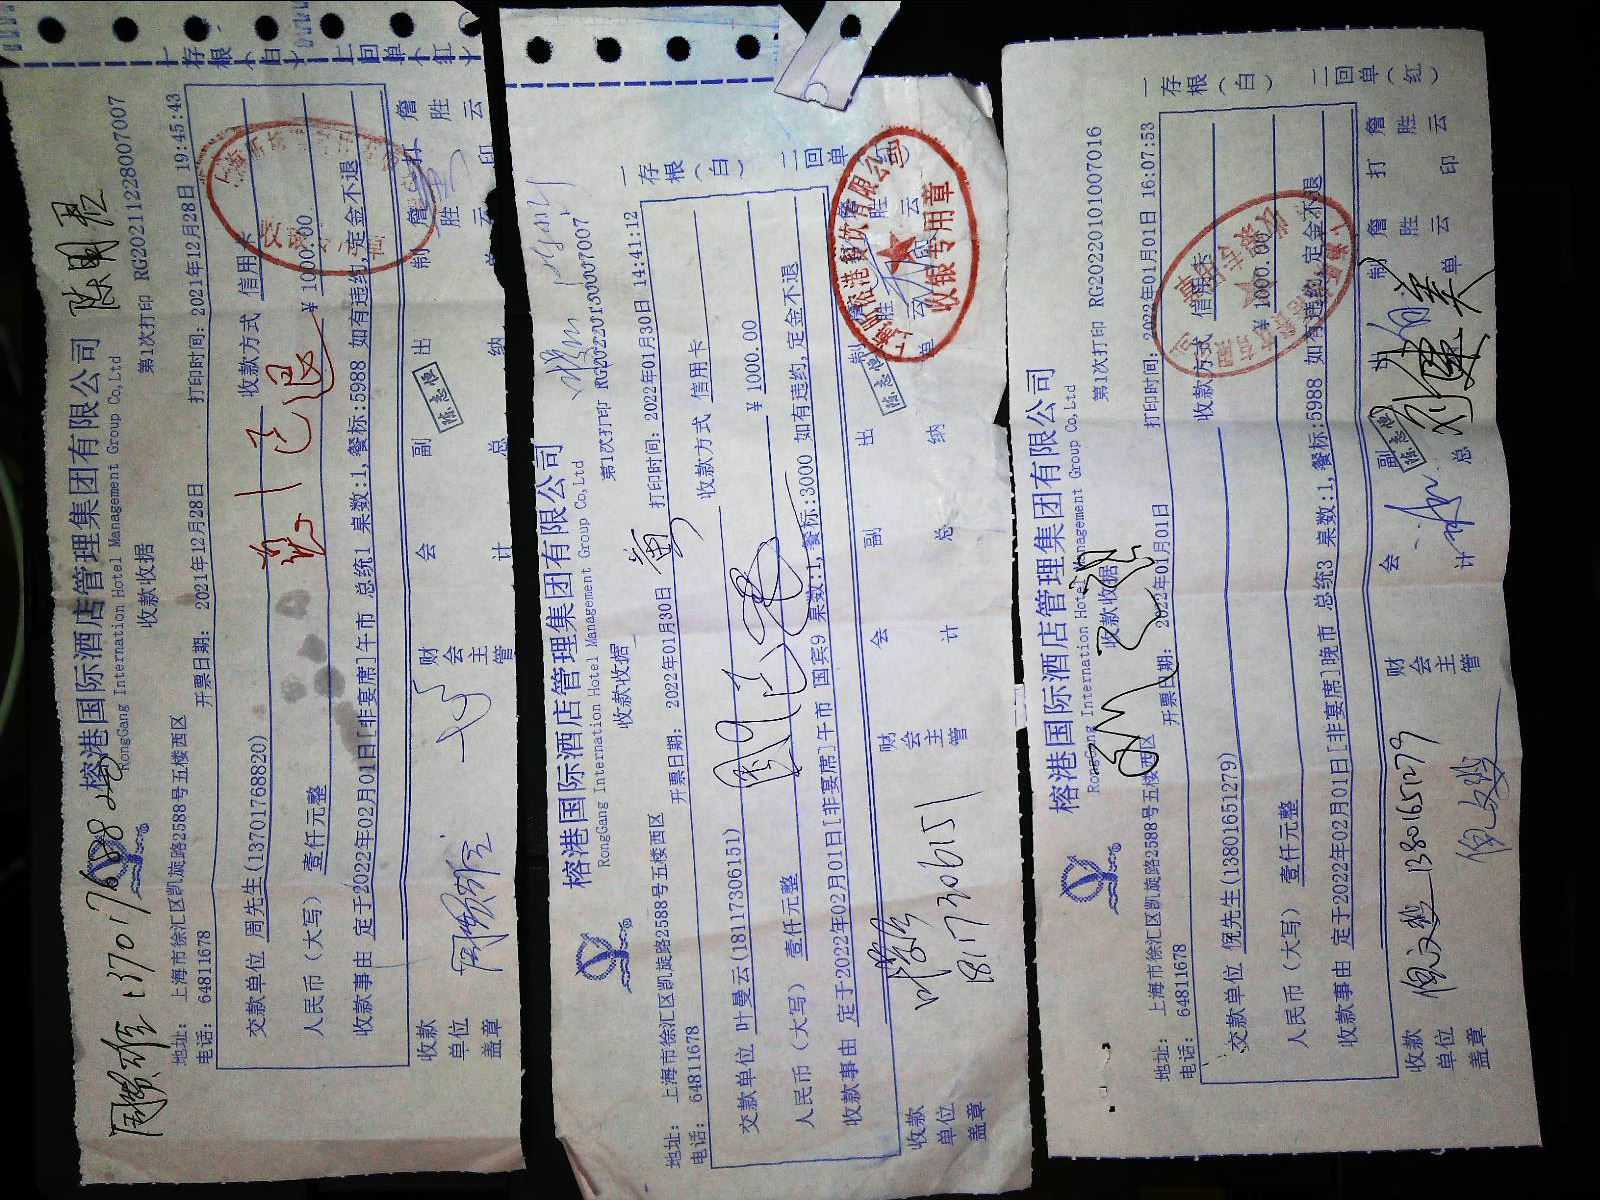 陈国君
榕港国际酒店管理集团有限公司
RongGang International Hotel Management Group Co,Ltd
收款收据
第1次打印 RG20211228007007
地址： 上海市徐汇区凯旋路2588号五楼西区
电话： 64811678
开票日期： 2021年12月28日
打印时间：2021年12月28日 19:45:43
交款单位 周先生(13701768820)
收款方式 信用卡
人民币（大写） 壹仟元整
￥ 1000.00
收款事由 定于2022年02月01日[非宴席]午市 总统1 桌数:1,餐标:5988 如有违约,定金不退
收款单位盖章
财会主管
会计
副总
出纳
制单 詹胜云
打印 詹胜云
一存根(白) 二回单(红)
陈志恒
已退
榕港国际酒店管理集团有限公司
RongGang International Hotel Management Group Co,Ltd
收款收据
第1次打印 RG20220130007007
地址： 上海市徐汇区凯旋路2588号五楼西区
电话： 64811678
开票日期： 2022年01月30日
打印时间：2022年01月30日 14:41:12
交款单位 叶曼云(18117306151)
收款方式 信用卡
人民币（大写） 壹仟元整
￥ 1000.00
收款事由 定于2022年02月01日[非宴席]午市 国宾9 桌数:1,餐标:3000 如有违约,定金不退
收款单位盖章
财会主管
会计
副总
出纳
制单 詹胜云
一存根(白) 二回单
陈志恒
收银专用章
18117306151
榕港国际酒店管理集团有限公司
RongGang International Hotel Management Group Co,Ltd
收款收据
第1次打印 RG20220101007016
地址： 上海市徐汇区凯旋路2588号五楼西区
电话： 64811678
开票日期： 2022年01月01日
打印时间：2022年01月01日 16:07:53
交款单位 倪先生(13801651279)
收款方式 信用卡
人民币（大写） 壹仟元整
￥ 1000.00
收款事由 定于2022年02月01日[非宴席]晚市 总统3 桌数:1,餐标:5988 如有违约,定金不退
收款单位盖章
财会主管
会计
副总
制单 詹胜云
打印 詹胜云
一存根(白) 二回单(红)
陈志恒
13801651279